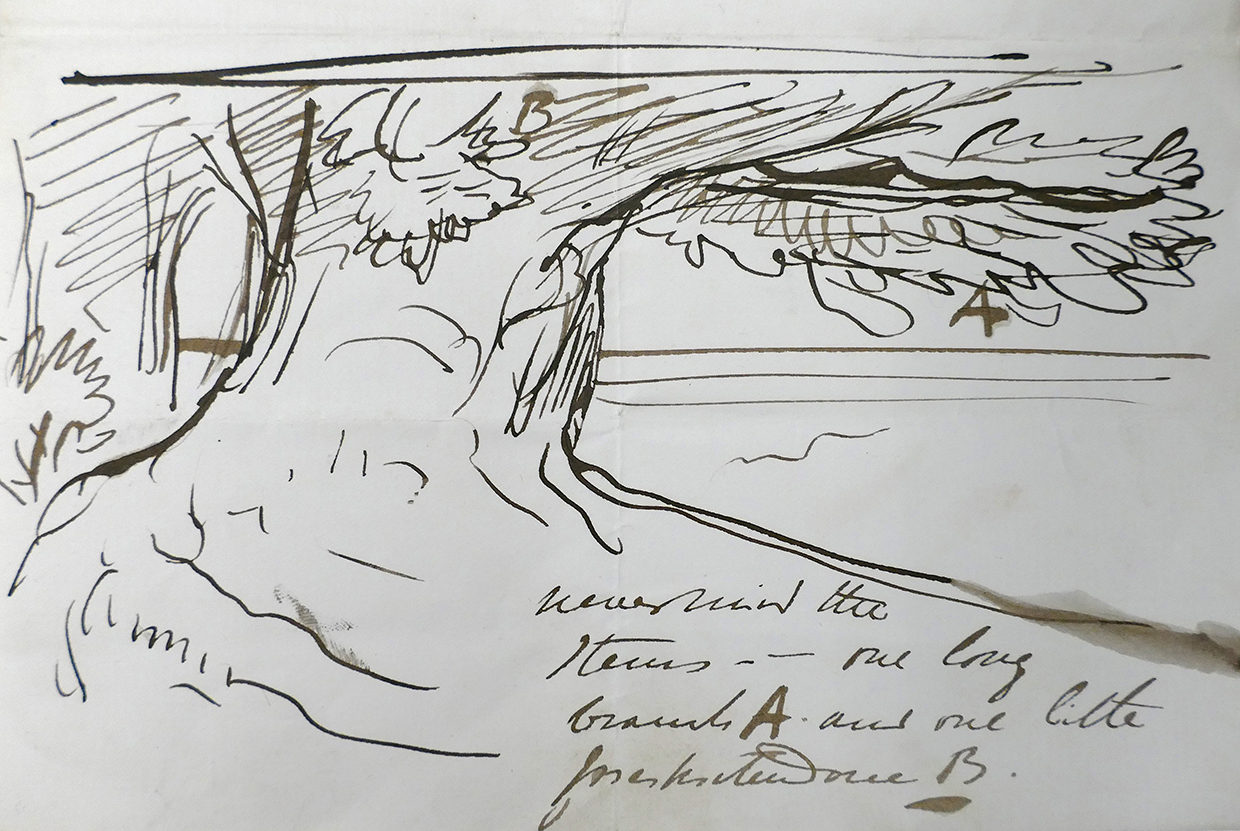 B
A
never mind the
stems -- one long
branch A. and one little
foreshortened one B.